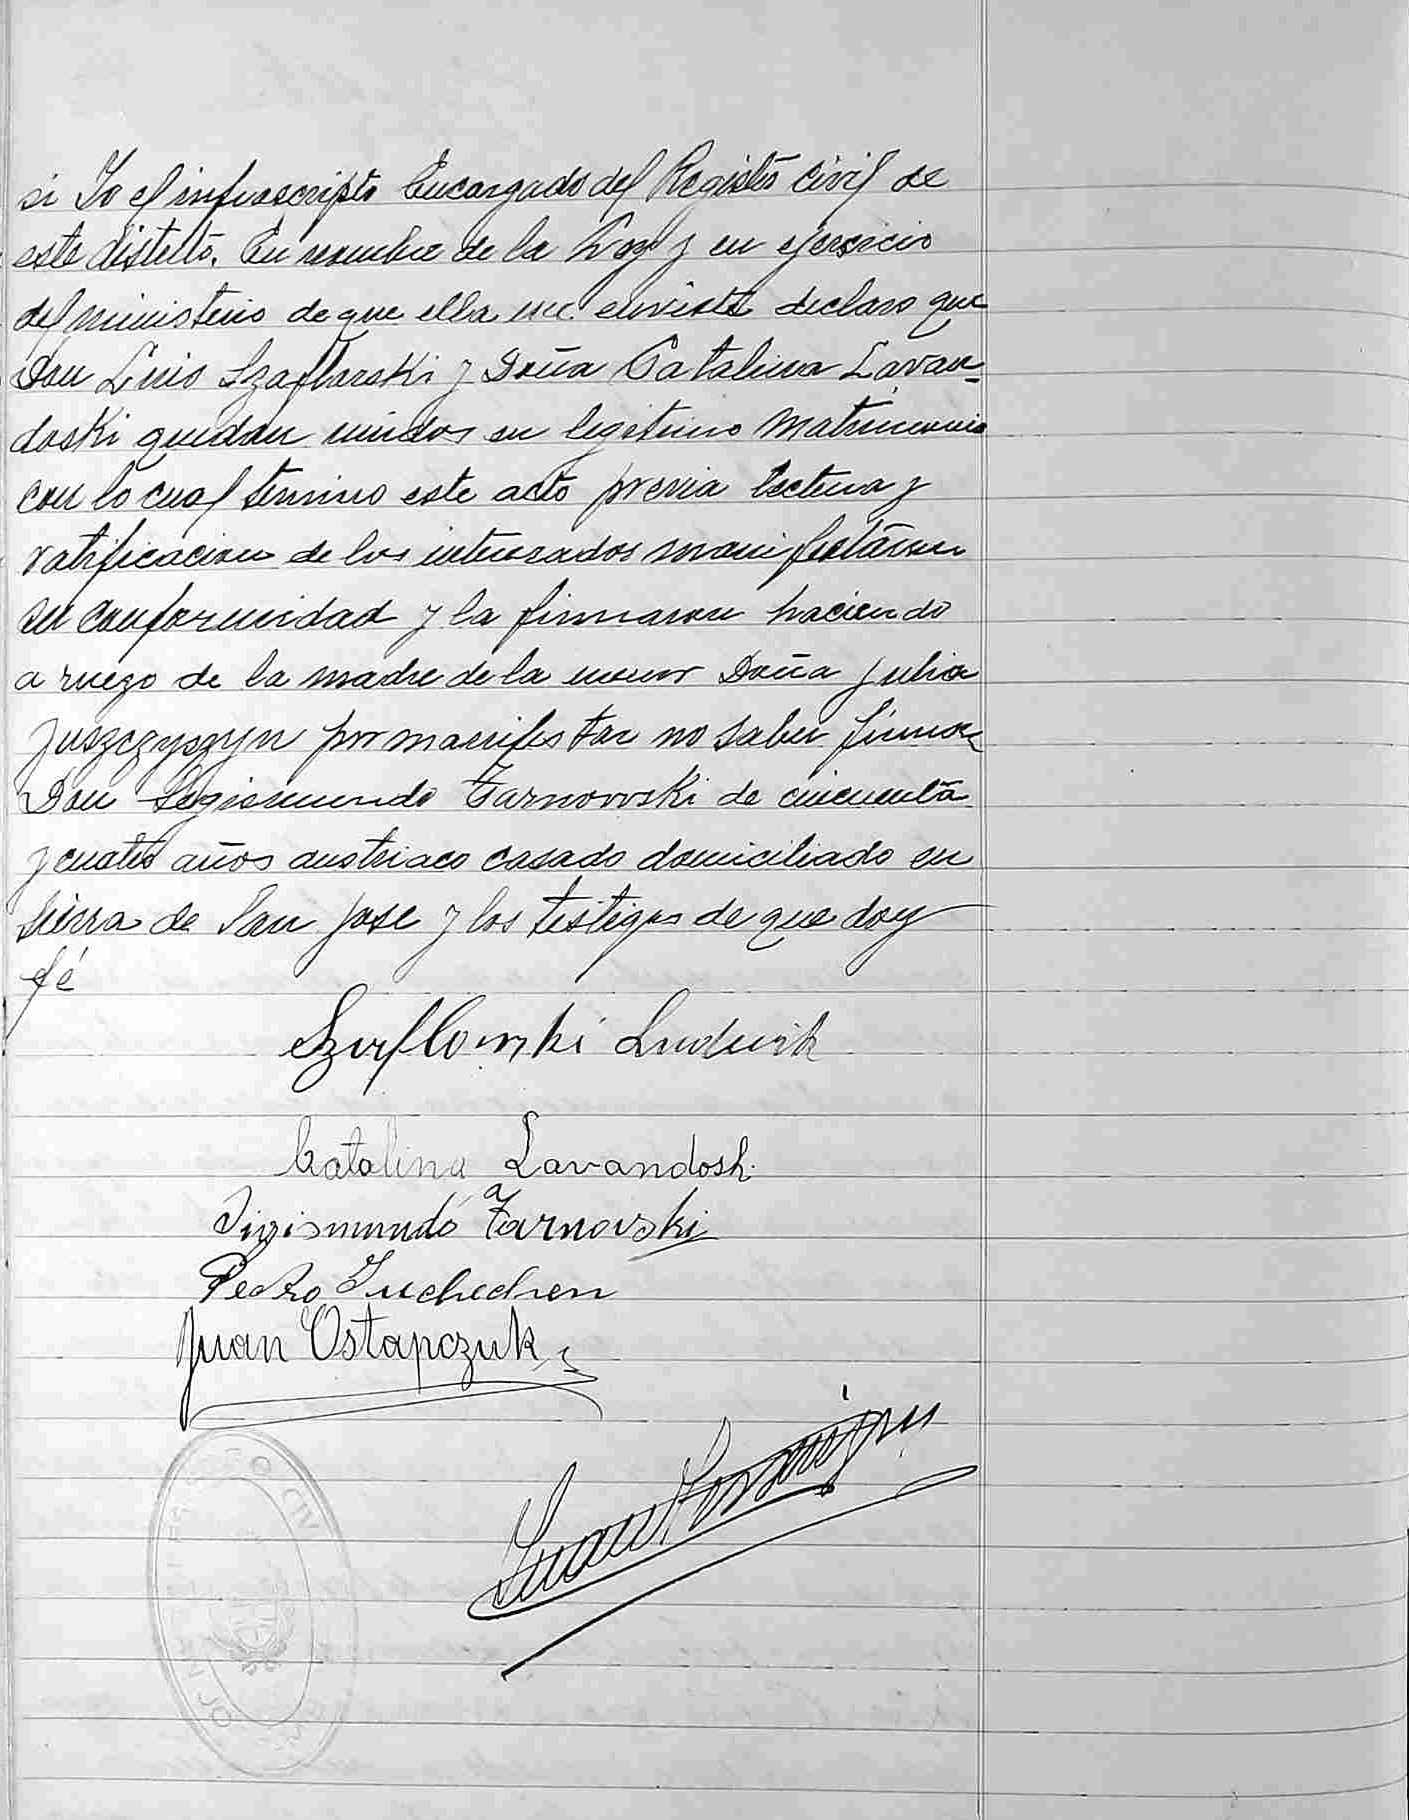 si Yo el infrascripto Encargado del Registro Civil de
este distrito. En nombre de la Ley y en ejersicio
del ministerio de que ella me envista declaro que
Don Luis Szaflarski y Doña Catalina Lavan-
doski quedan unidos en legitimo Matrimonio
con lo cual termino este acto previa lectura y
ratificacion de los interesados manifestaron
su conformidad y la firmaron haciendo
a ruego de la madre de la menor Doña Julia
Juszczyszyn por manifestar no saber firmar
Don Segismundo Tarnowski de cincuenta
y cuatro años austriaco casado domiciliado en
Sierra de San Jose y los testigos de que doy
fé
Szaflarski Ludwik
Catalina Lavandoski
Sigismundo Tarnovski
Pedro
Juan Ostapczuk
Juan
CIV
AN JO